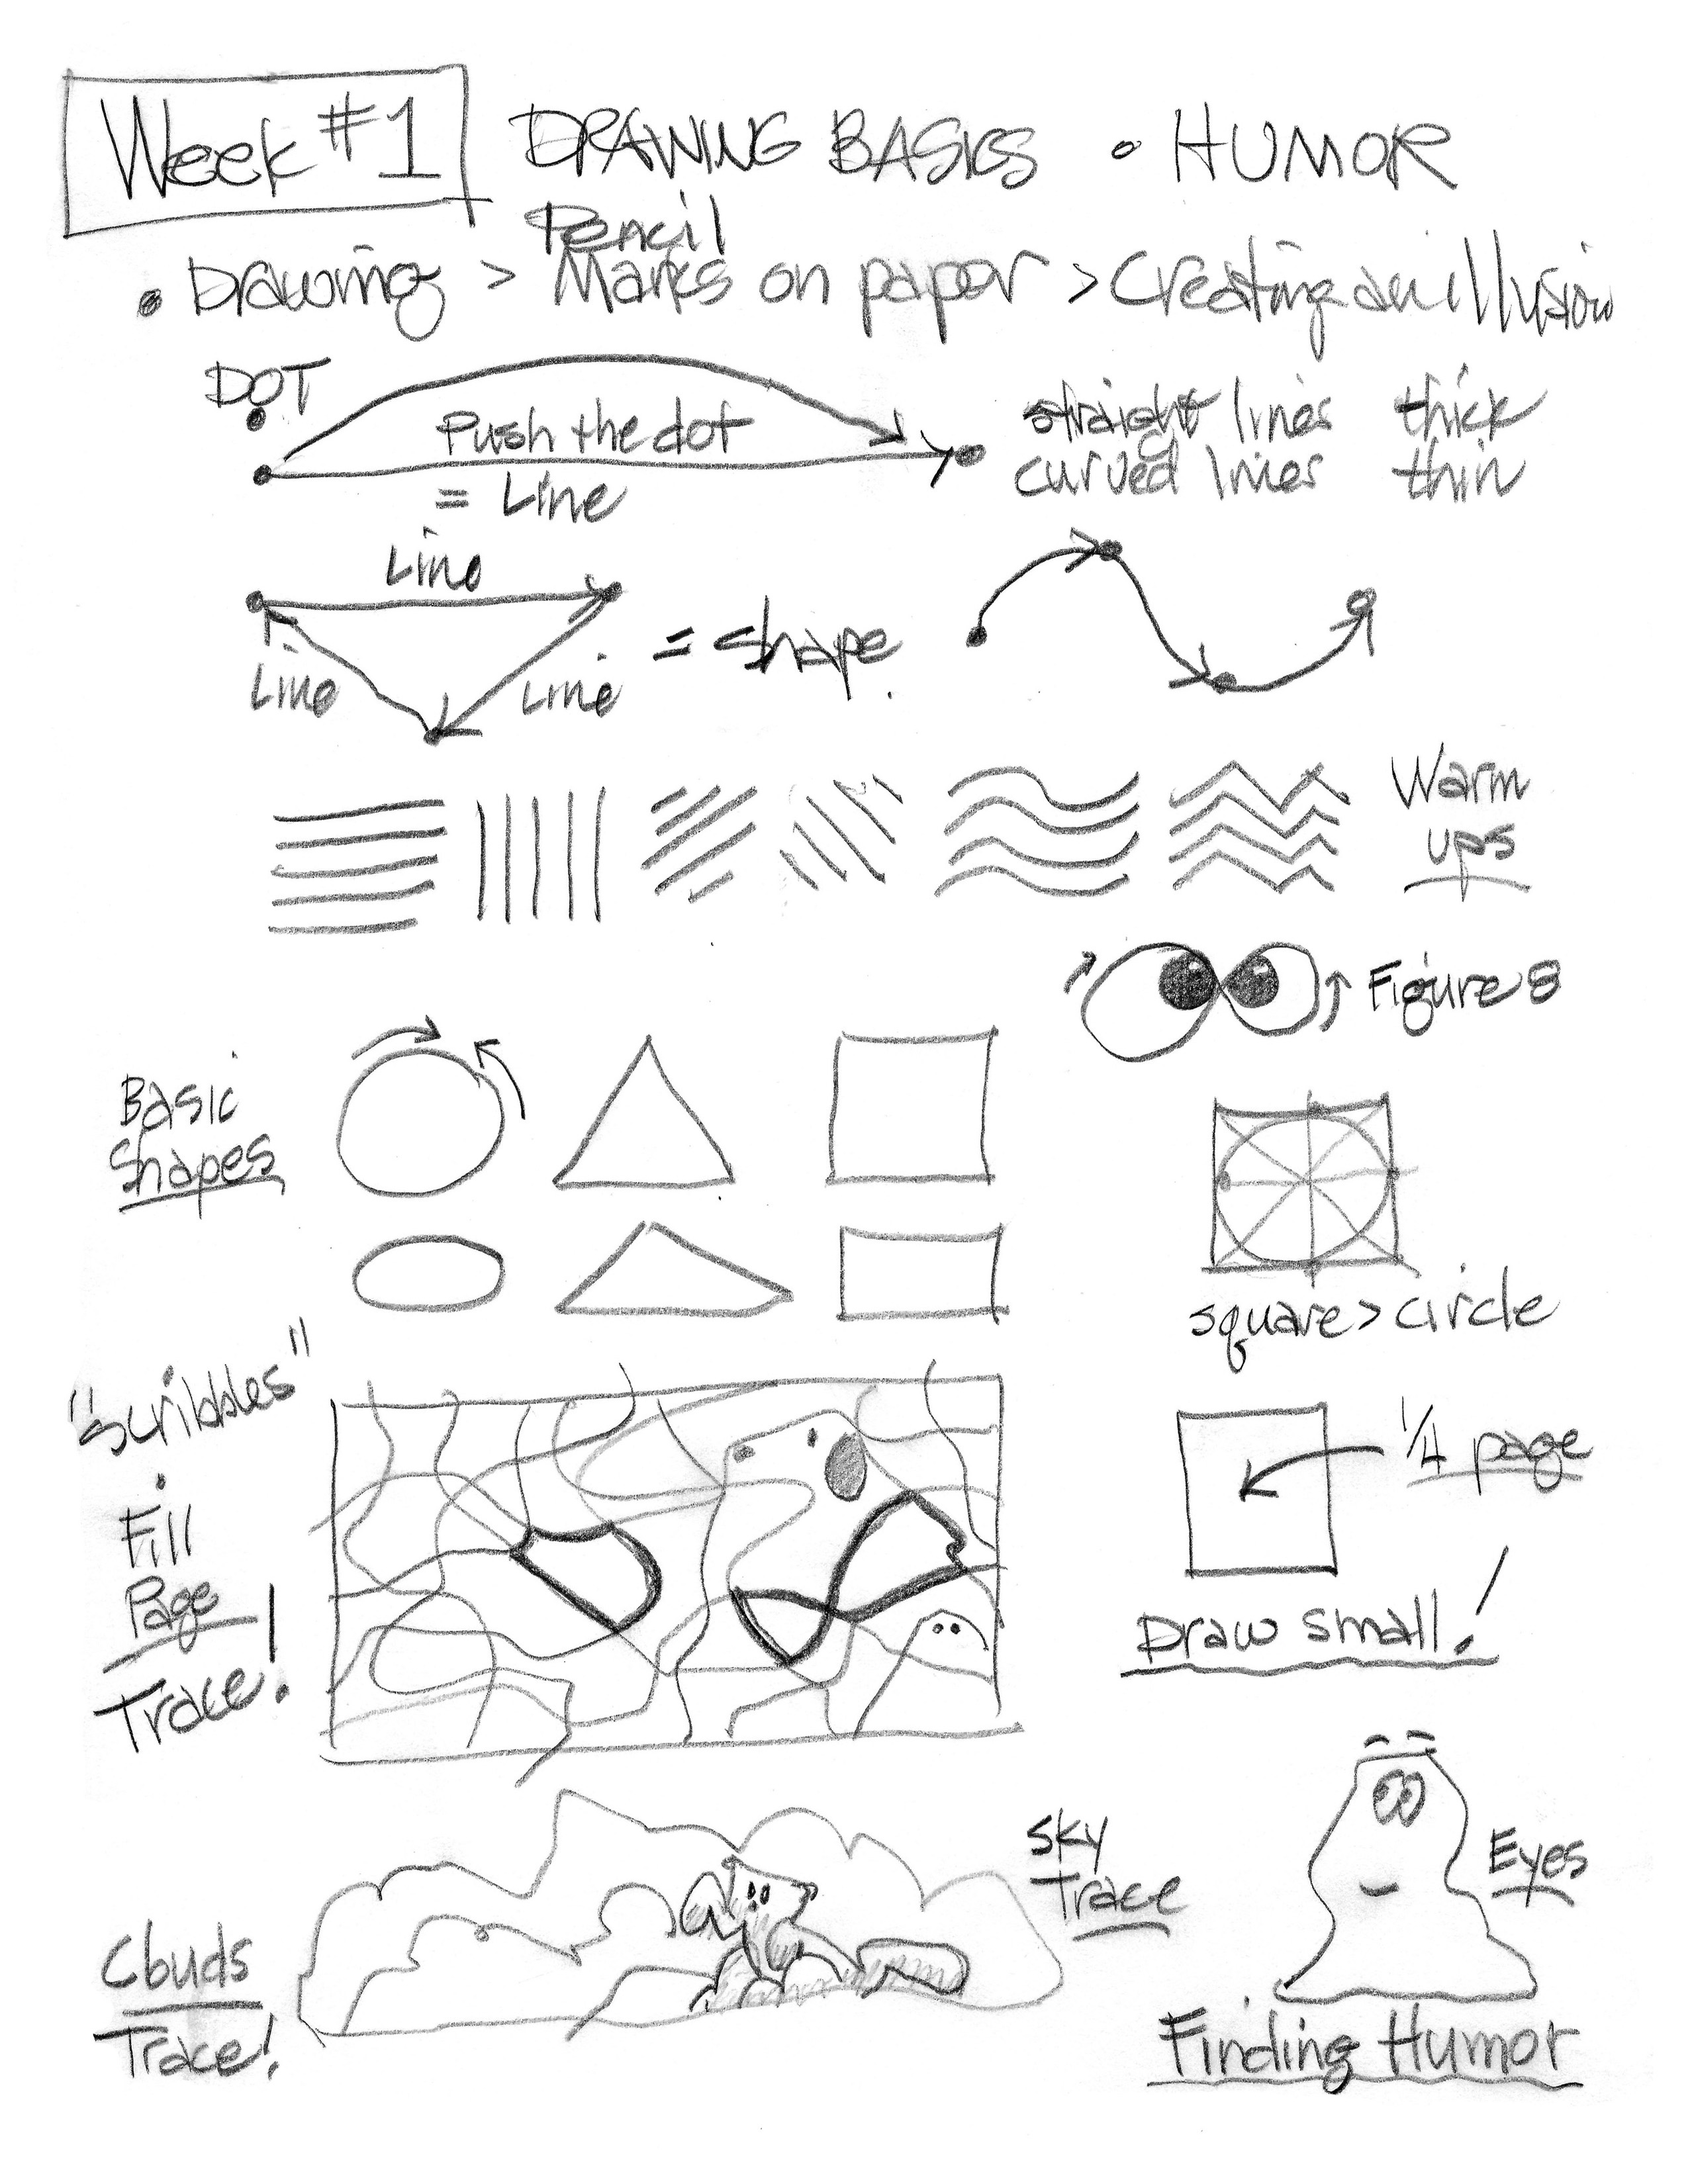 Week #1 DRAWING BASICS • HUMOR
Pencil
• Drawing > Marks on paper > Creating an illusion
DOT
Push the dot
= Line
straight lines thick
curved lines thin
Line
Line Line = shape.
Warm
ups
Figure 8
Basic
Shapes
square > circle
"Scribbles"
•
Fill
Page
Trace!
1/4 page
Draw small!
Sky
Trace
Eyes
Clouds
Trace!
Finding Humor